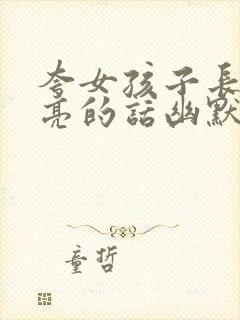 夸女孩子长
亮的话幽默
童哲